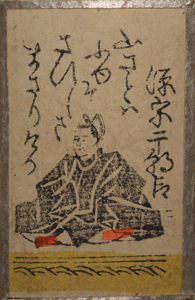 源宗于朝臣
山さとは
ふゆそ
さひしさ
まさりける